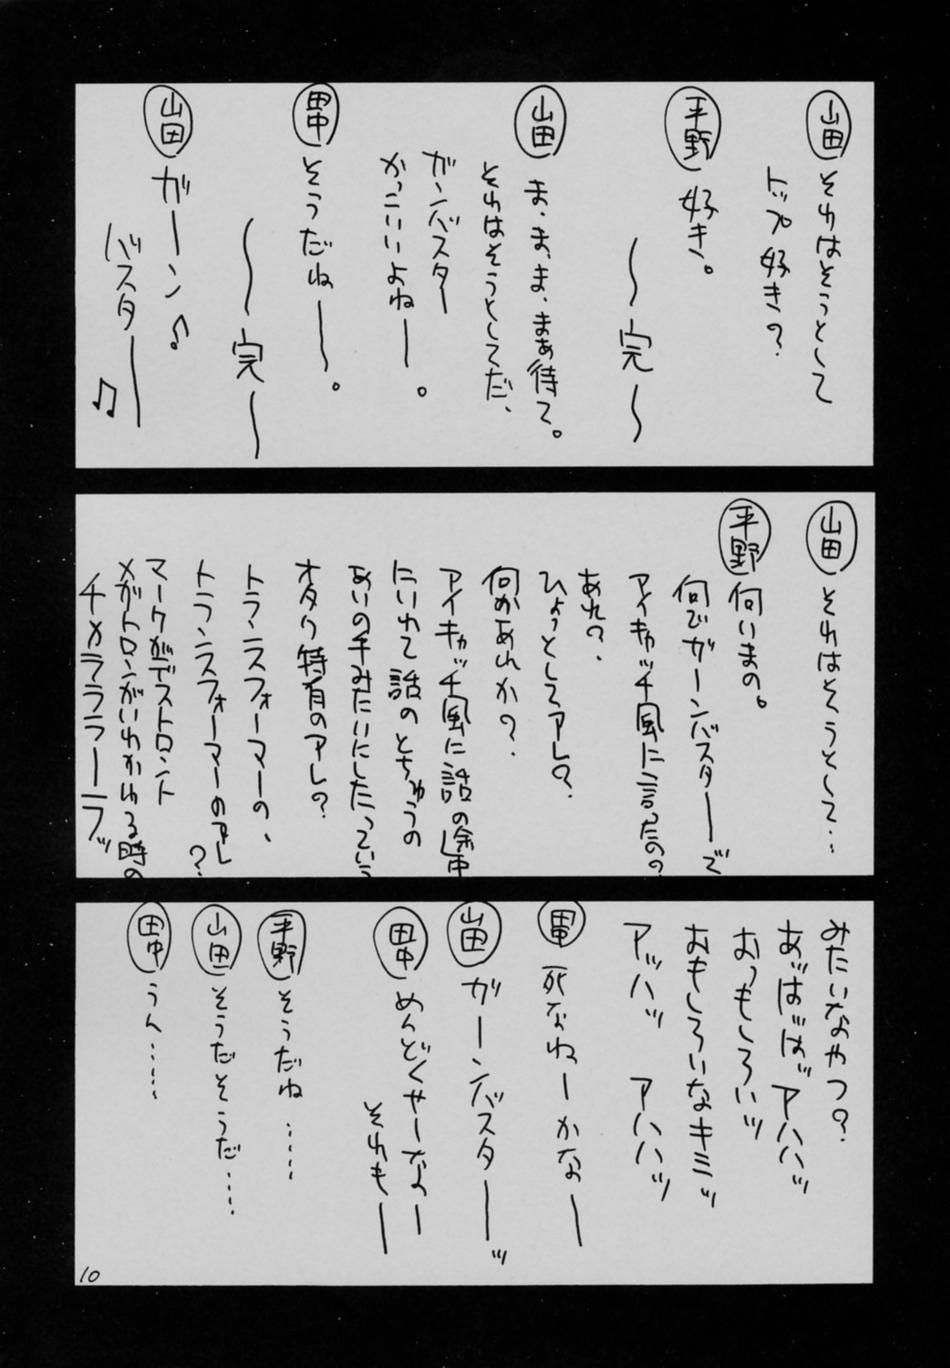 山田 それはそうとして
トップ好き？
平野 好き。
〜完〜
山田 ま、ま、ま、まぁ待て。
それはそうとしてだ、
ガンバスター
かっこいいよねー。
田中 そうだねー。
〜完〜
山田 ガーン♪
バスター♫
山田 それはそうとして…
平野 何いまの。
何でガーンバスターーで
アイキャッチ風に言ったの？
あれ？、
ひょっとしてアレ？、
何かあれか？、
アイキャッチ風に話の途中
にいれて話のとちゅうの
あいの手みたいにしたっていう
オタク特有のアレ？
トランスフォーマーの、
トランスフォーマーのアレ？
マークがデストロント
メガトロンがいれかわる時の
チャラララーラッ
みたいなやつ？
あ゛ば゛ば゛ッアハハッ
おっもしろいッ
おもしろいなキミッ
アッハッ アハハッ
田中 死なねーかなー
山田 ガーンバスターーッ
田中 めんどくせーなー
それもー
平野 そうだね……
山田 そうだそうだ……
田中 うん……
10